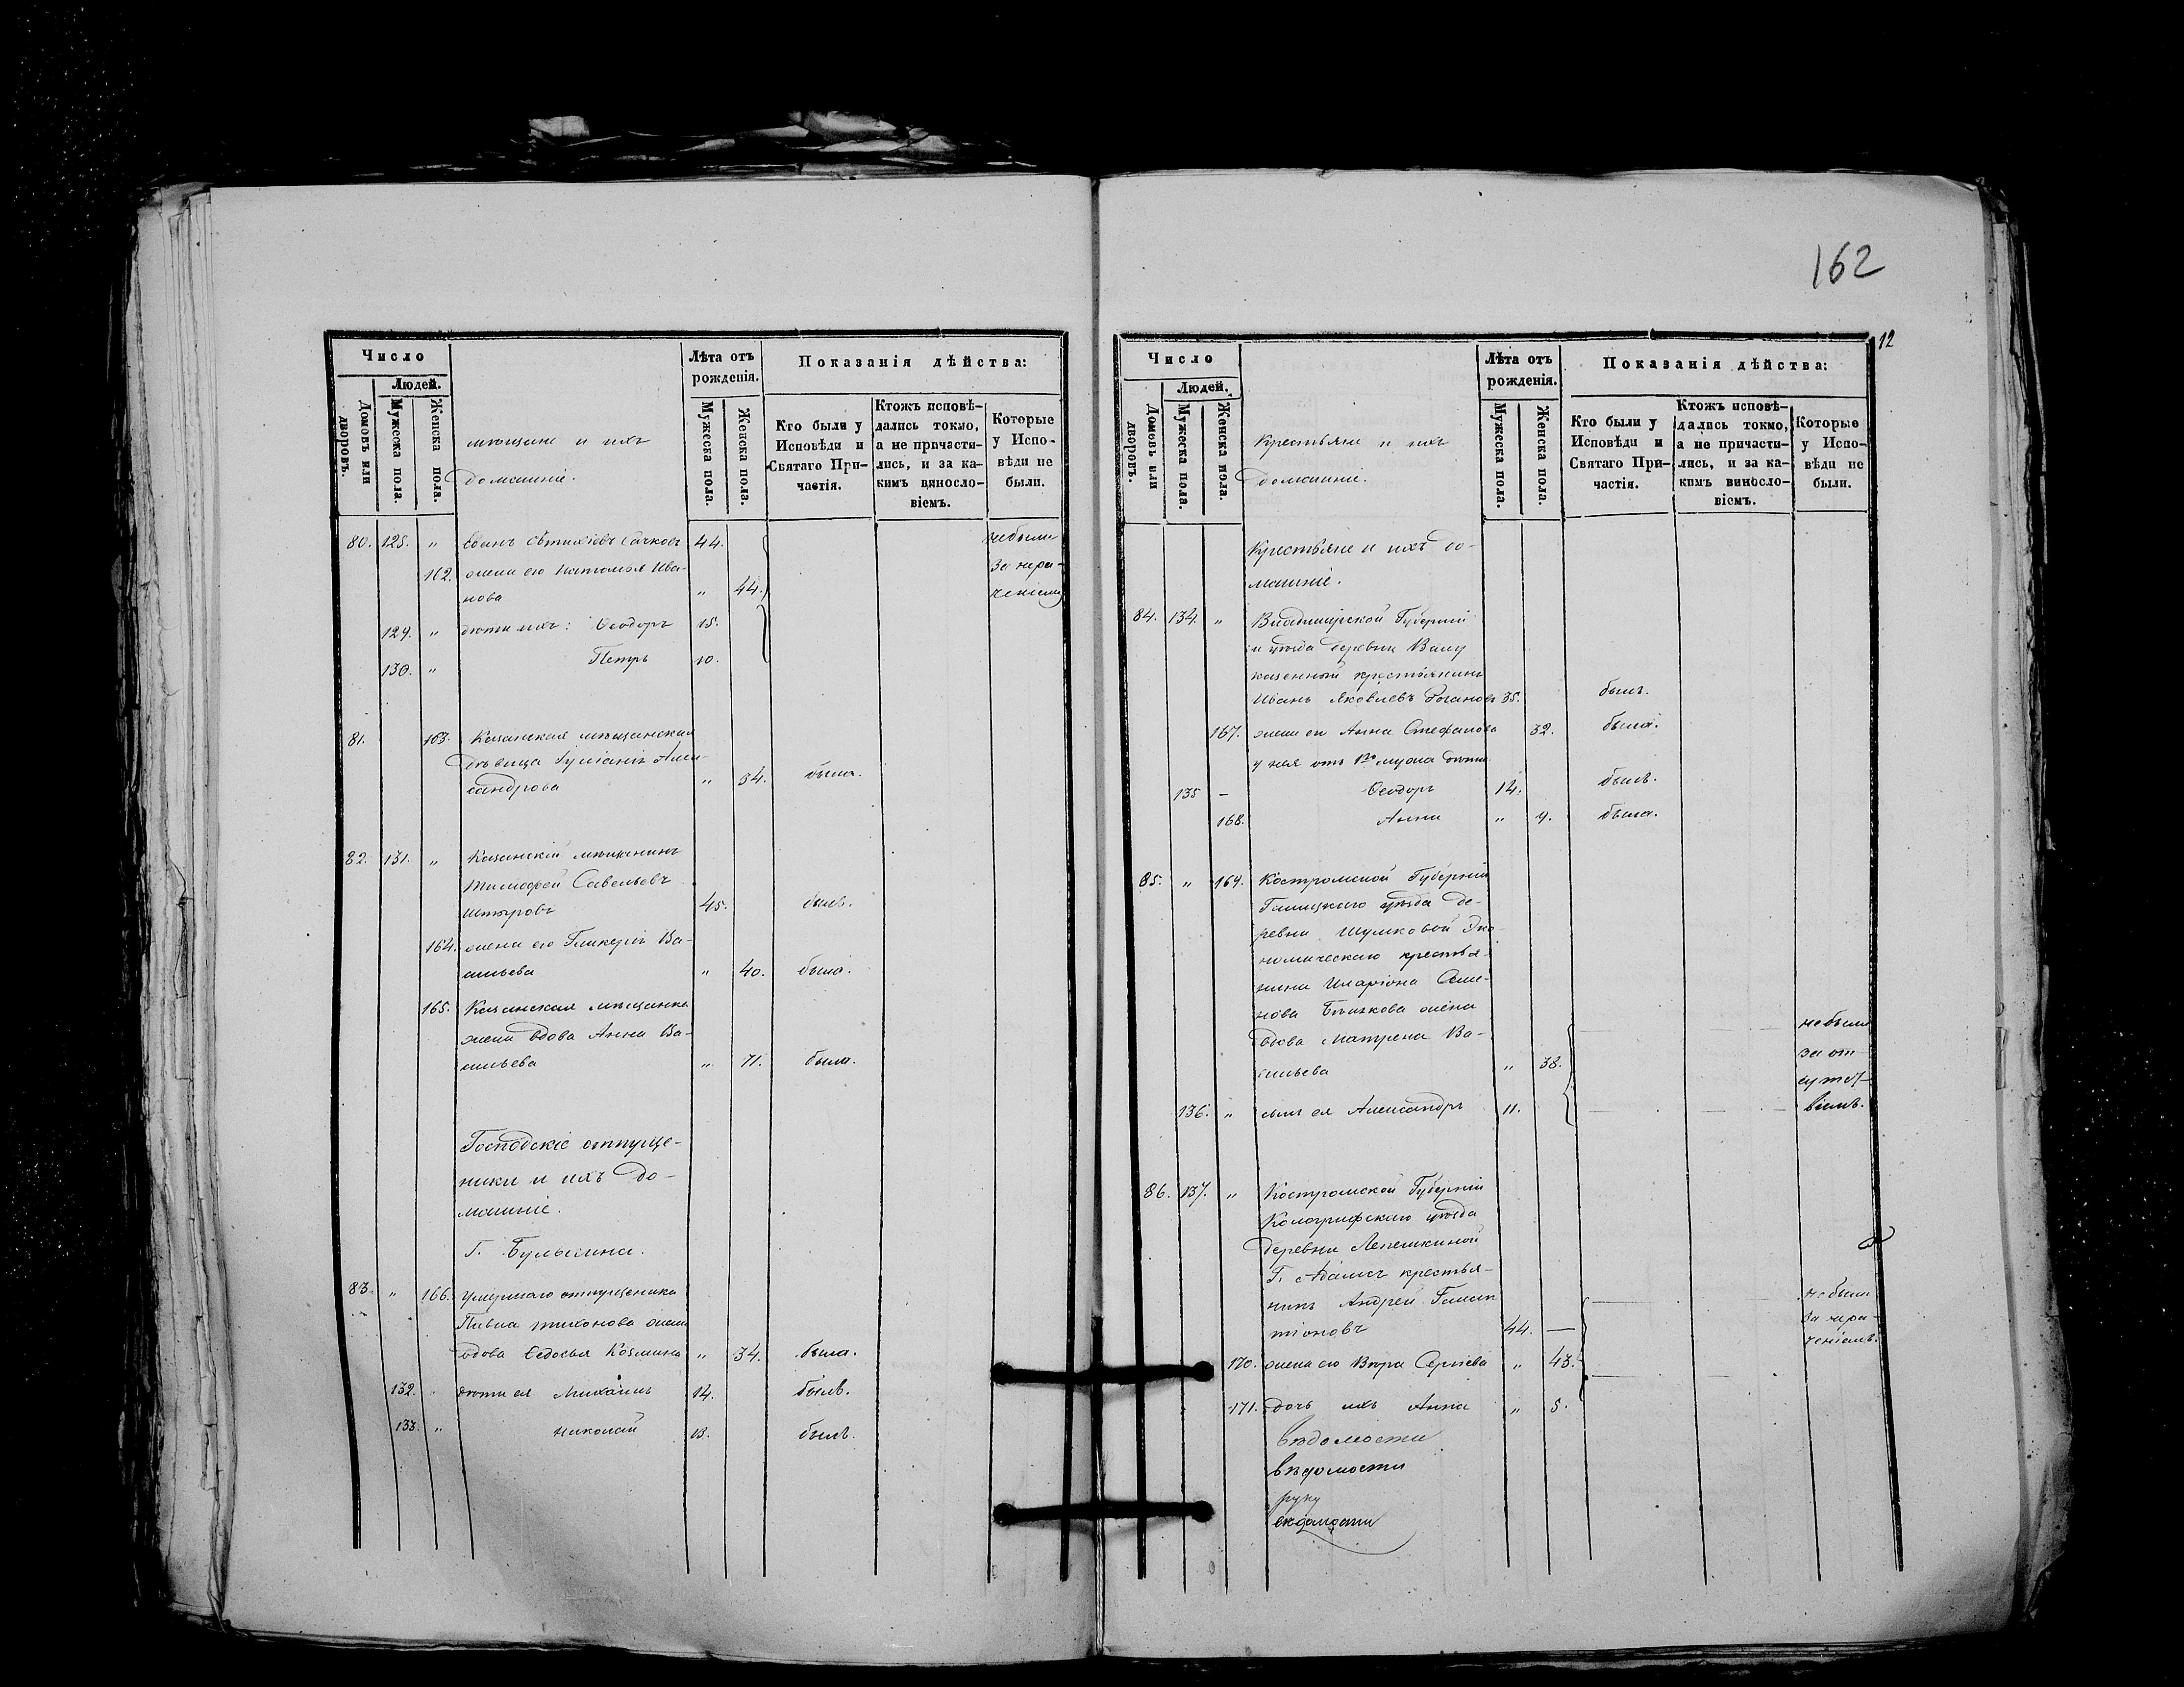 162
12
Число
Людей.
Домовъ или дворовъ.
Мужеска пола.
Женска пола.
мѣщане и ихъ
домашніе.
Лѣта отъ
рожденія.
Мужеска пола.
Женска пола.
Показанія дѣйства:
Кто были у
Исповѣди и
Святаго При-
частія.
Ктожъ исповѣ-
дались токмо,
а не причасти-
лись, и за ка-
кимъ винosло-
віемъ.
Которые
у Испо-
вѣди не
были.
80. 128. „ 44. небыли
162. жена его Наталья Ива- за нера-
нова „ 44. ченіемъ
129. „ дѣти ихъ: Ѳеодоръ 15.
130. „ Петръ 10.
81. 163. Казанская мѣщанская
дѣвица Алек-
сандрова „ 34. была.
82. 131. „ Казанскій мѣщанинъ
Тимофей Савельевъ
45. былъ.
164. жена его Гликерія Ва-
сильева „ 40. была.
165. Казанская мѣщанка
жена вдова Анна Ва-
сильева „ 71. была.
Господскіе отпуще-
ники и ихъ до-
машніе.
Г. Булыгина.
83. „ 166. умершаго отпущеника
Павла Тихонова жена
вдова Ѳедосья Козмина „ 34. была.
132. дѣти ея Михаилъ 14. былъ.
133. „ Николай 13. былъ.
Число
Людей.
Домовъ или дворовъ.
Мужеска пола.
Женска пола.
Крестьяне и ихъ
домашніе.
Лѣта отъ
рожденія.
Мужеска пола.
Женска пола.
Показанія дѣйства:
Кто были у
Исповѣди и
Святаго При-
частія.
Ктожъ исповѣ-
дались токмо,
а не причасти-
лись, и за ка-
кимъ винosло-
віемъ.
Которые
у Испо-
вѣди не
были.
Крестьяне и ихъ до-
машніе.
84. 134. „ Владимірской Губерніи
и уѣзда деревни
казенный крестьянинъ
Иванъ Яковлевъ 35. былъ.
167. жена его Анна Стефанова 32. была.
у нея отъ 1го мужа дѣти
135 – Ѳеодоръ 14. былъ.
168. Анна „ 9. была.
85. „ 169. Костромской Губерніи
Галицкаго уѣзда де-
ревни Шулковой Эко-
номическаго крестья-
нина Иларіона Семе-
нова жена
вдова Матрена Ва- небыли
сильева „ 38. за от-
сутст-
136. „ сынъ ея Александръ 11. віемъ.
86. 137. „ Костромской Губерніи
Кологривскаго уѣзда
деревни Лепешкиной
Г. Адамсъ крестья-
нинъ Андрей Галак- небыли
тіоновъ 44. — за нера-
ченіемъ.
170. жена его Вѣра Сергіева „ 43.
171. дочь ихъ Анна „ 5.
вѣдомости
вѣдомости
руку